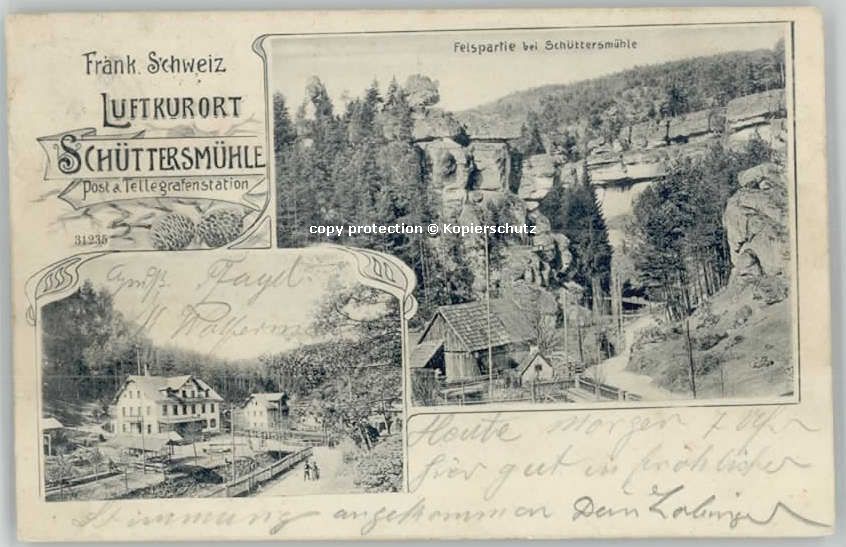 Fränk. Schweiz
LUFTKURORT
SCHÜTTERSMÜHLE
Post & Tellegrafenstation
31235
Felspartie bei Schüttersmühle
copy protection © Kopierschutz
Gruß
Heute Morgen 7 Uhr
hier gut in fröhlicher
Stimmung angekommen Dein